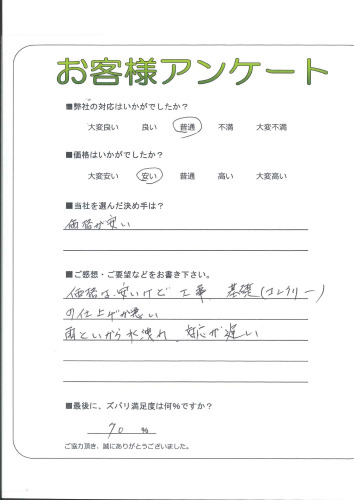 お客様アンケート
■弊社の対応はいかがでしたか?
大変良い 良い 普通 不満 大変不満
■価格はいかがでしたか?
大変安い 安い 普通 高い 大変高い
■当社を選んだ決め手は?
価格が安い
■ご感想・ご要望などをお書き下さい。
価格は、安いけど 工事、基礎(コンクリー)
の仕上げが悪い
雨といから水洩れ、対応が遅い
■最後に、ズバリ満足度は何%ですか?
70 %
ご協力頂き、誠にありがとうございました。